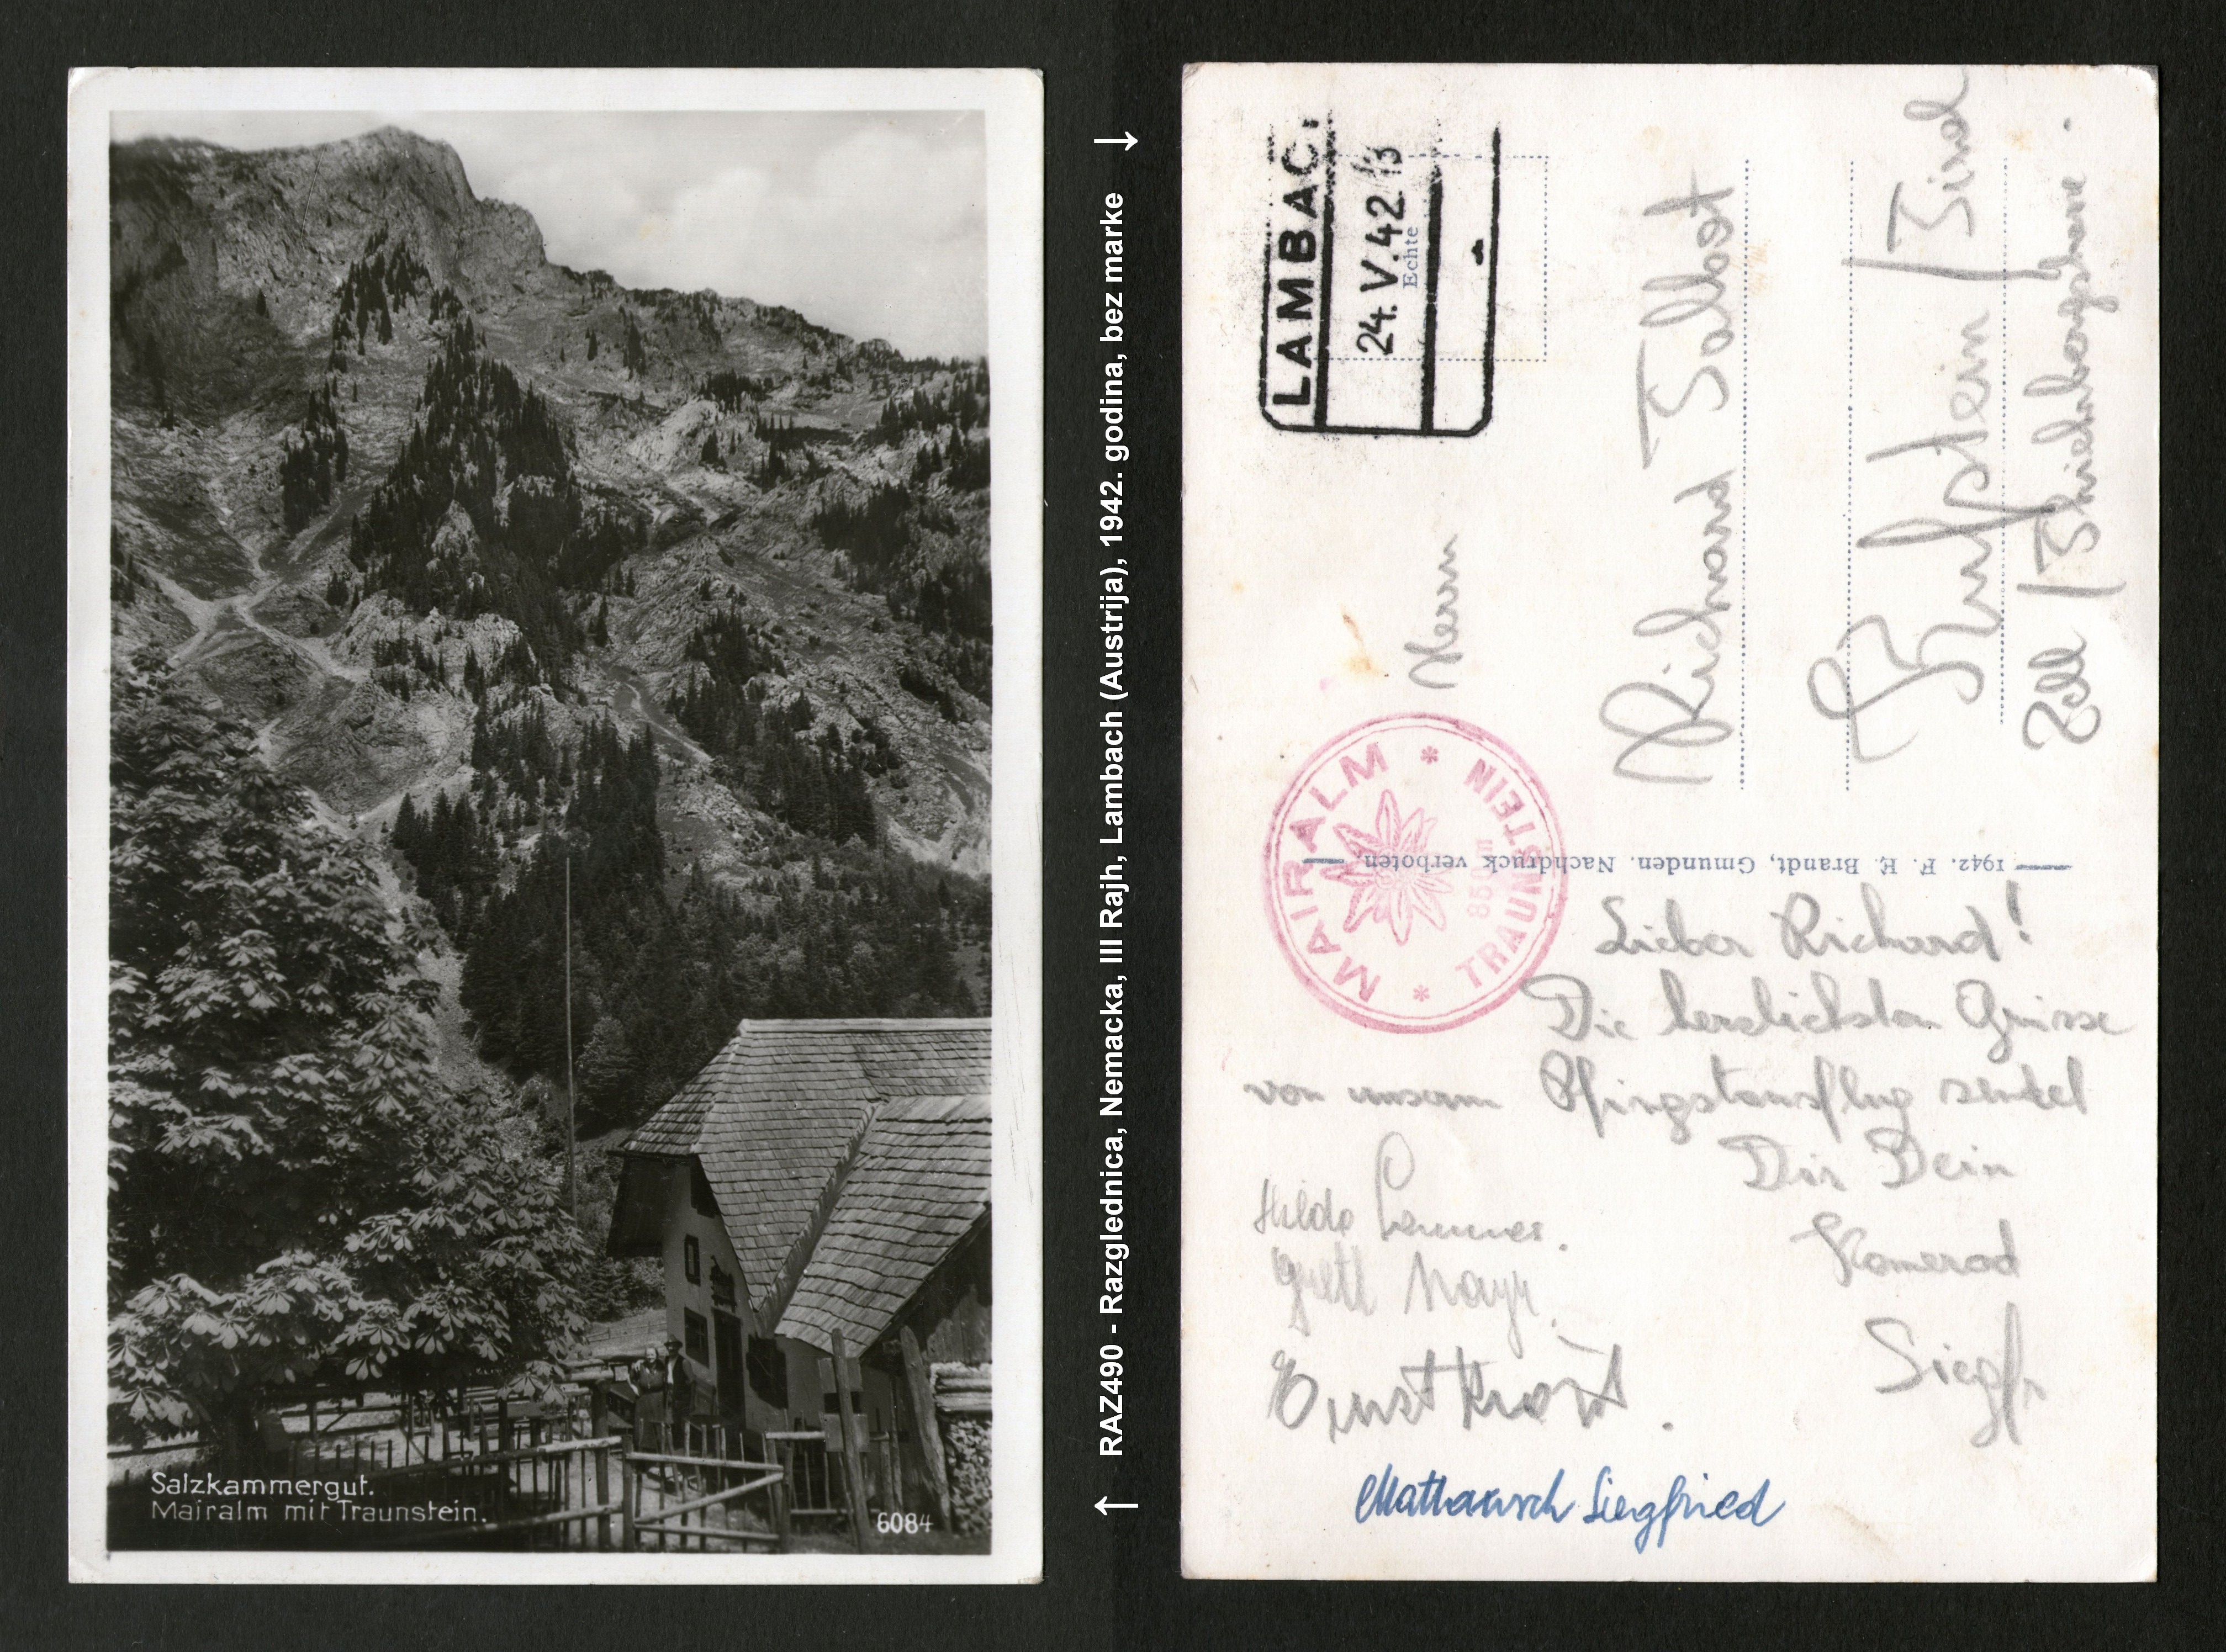 Salzkammergut.
Mairalm mit Traunstein.
6084
RAZ490 - Razglednica, Nemacka, III Rajh, Lambach (Austrija), 1942. godina, bez marke
LAMBAC
24. V. 42. 13
Echte
Herrn
Richard
Kufstein / Tirol
Zell /
* MAIRALM * TRAUNSTEIN
850 m
1942. F. E. Brandt, Gmunden. Nachdruck verboten.
Lieber Richard!
Die herzlichsten Grüsse
von unserm Pfingstausflug sendet
Dir Dein
Kamerad
Siegfr
Hilde
Gretl Mayr.
Ernst
Siegfried